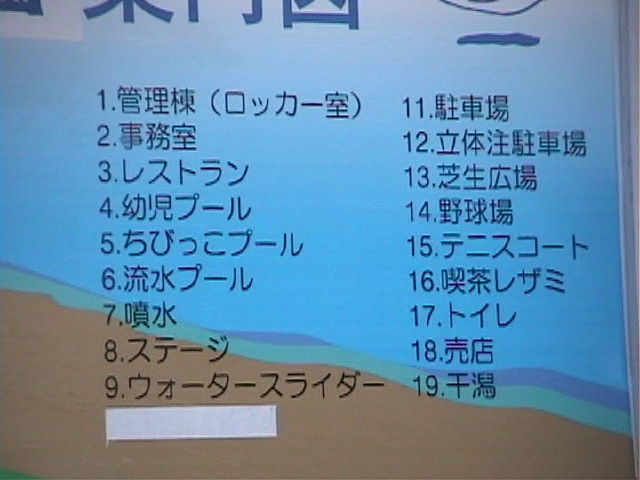 案内図
1.管理棟（ロッカー室）
2.事務室
3.レストラン
4.幼児プール
5.ちびっこプール
6.流水プール
7.噴水
8.ステージ
9.ウォータースライダー
11.駐車場
12.立体注駐車場
13.芝生広場
14.野球場
15.テニスコート
16.喫茶レザミ
17.トイレ
18.売店
19.干潟